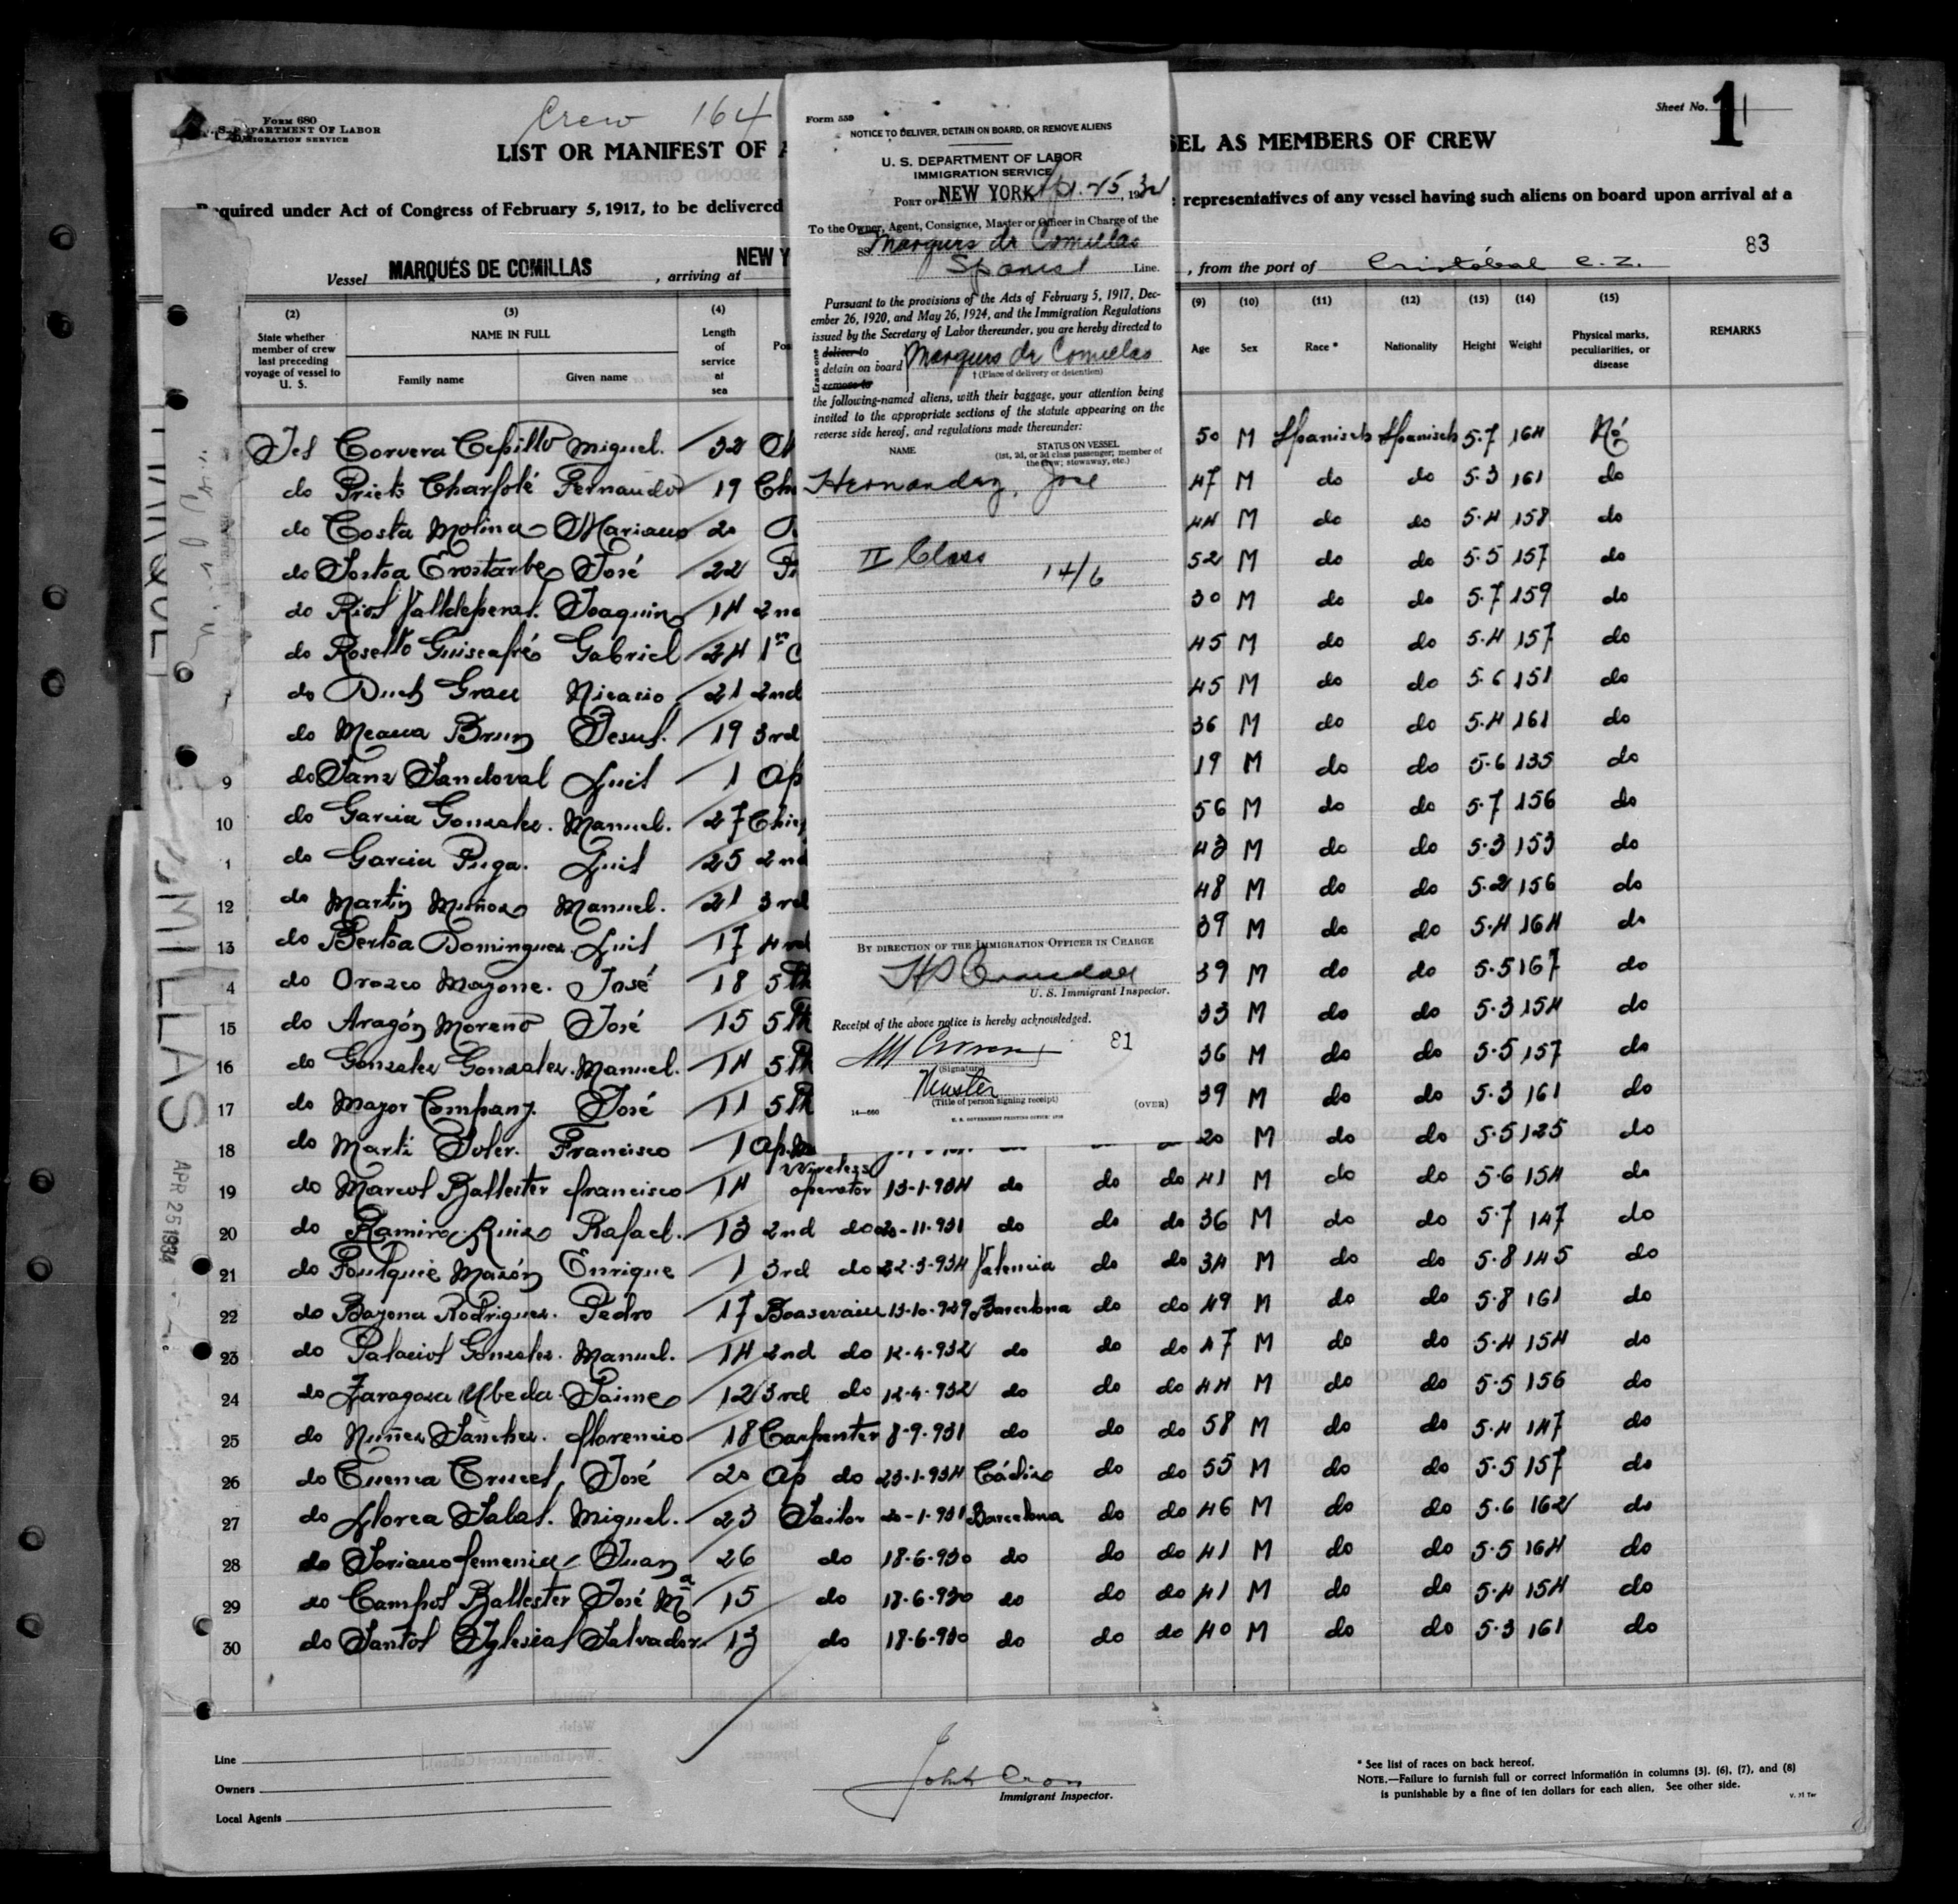 Form 680
U. S. DEPARTMENT OF LABOR
IMMIGRATION SERVICE
Crew 164
Sheet No. 1
LIST OR MANIFEST OF
SEL AS MEMBERS OF CREW
Required under Act of Congress of February 5, 1917, to be delivered
representatives of any vessel having such aliens on board upon arrival at a
83
Vessel MARQUÉS DE COMILLAS , arriving at NEW Y
, from the port of Cristóbal C. Z.
(2) (3) (4) (9) (10) (11) (12) (13) (14) (15)
State whether member of crew last preceding voyage of vessel to U. S.
NAME IN FULL
Family name Given name
Length of service at sea
Pos
Age Sex Race * Nationality Height Weight
Physical marks, peculiarities, or disease
REMARKS
Form 559
NOTICE TO DELIVER, DETAIN ON BOARD, OR REMOVE ALIENS
U. S. DEPARTMENT OF LABOR
IMMIGRATION SERVICE
PORT OF NEW YORK Apl. 25, 1934
To the Owner, Agent, Consignee, Master or Officer in Charge of the
SS Marques de Comillas
Spanish Line.
Pursuant to the provisions of the Acts of February 5, 1917, Dec-
ember 26, 1920, and May 26, 1924, and the Immigration Regulations
issued by the Secretary of Labor thereunder, you are hereby directed to
Erase one
deliver to
detain on board Marques de Comillas
remove to
† (Place of delivery or detention)
the following-named aliens, with their baggage, your attention being
invited to the appropriate sections of the statute appearing on the
reverse side hereof, and regulations made thereunder:
NAME
STATUS ON VESSEL
(1st, 2d, or 3d class passenger; member of the crew; stowaway, etc.)
Hernandez, Jose
II Class 14/6
BY DIRECTION OF THE IMMIGRATION OFFICER IN CHARGE
U. S. Immigrant Inspector.
Receipt of the above notice is hereby acknowledged.
81
(Signature)
Master
(Title of person signing receipt)
14—660
(OVER)
U. S. GOVERNMENT PRINTING OFFICE
Corvera Cepillo Miguel. 32 50 M Spanisch Spanisch 5.7 164 Nó
do Fernando 19 Ch 47 M do do 5.3 161 do
do Costa Molina Mariano 20 44 M do do 5.4 158 do
do Erostarbe José 22 52 M do do 5.5 157 do
do Rios Valldeperas. Joaquin 14 2nd 30 M do do 5.7 159 do
do Roselló Guiscafré Gabriel 24 1er 45 M do do 5.4 157 do
do Duch Grau Nicasio 21 2nd 45 M do do 5.6 151 do
do Meaua Brun Jesus. 19 3rd 36 M do do 5.4 161 do
9 do Sanz Sandoval Luis 1 Ap 19 M do do 5.6 135 do
10 do Garcia Gonzalez. Manuel. 27 Chief 56 M do do 5.7 156 do
1 do Garcia Puga. Luis 25 2nd 43 M do do 5.3 153 do
12 do Martin Muñoz Manuel. 21 3rd 48 M do do 5.2 156 do
13 do Bertoa Dominguez. Luis 17 39 M do do 5.4 164 do
4 do Orozco Mayone. José 18 5th 39 M do do 5.5 167 do
15 do Aragón Moreno José 15 5th 33 M do do 5.3 154 do
16 do Gonzalez Gonzalez. Manuel. 14 5th 36 M do do 5.5 157 do
17 do Mayor Company. José 11 5th 39 M do do 5.3 161 do
18 do Marti Soler. Francisco 1 Ap. 20 M do do 5.5 125 do
19 do Marcos Ballester francisco 14 Wireless operator 13-1-934 do do do 41 M do do 5.6 154 do
20 do Ramiro Ruiz Rafael. 13 2nd do 20-11-931 do do do 36 M do do 5.7 147 do
21 do Foulquie Mazón Enrique 1 3rd do 22-3-934 Valencia do do 34 M do do 5.8 145 do
22 do Bayona Rodriguez. Pedro 17 13-10-929 Barcelona do do 49 M do do 5.8 161 do
23 do Palacios Gonzalez. Manuel. 14 2nd do 12-4-932 do do do 47 M do do 5.4 154 do
24 do Zaragoza Ubeda. Jaime 12 3rd do 12-4-932 do do do 44 M do do 5.5 156 do
25 do Nuñez Sanchez. florencio 18 Carpenter 8-9-931 do do do 58 M do do 5.4 147 do
26 do Cuenca Cruces, José 20 Ap do 23-1-934 Cádiz do do 55 M do do 5.5 157 do
27 do Llorca Salas. Miguel. 23 Sailor 20-1-931 Barcelona do do 46 M do do 5.6 162 do
28 do Soriano femenia Juan 26 do 18-6-930 do do do 41 M do do 5.5 164 do
29 do Campos Ballester José Mª 15 do 18-6-930 do do do 41 M do do 5.4 154 do
30 do Santos Iglesias Salvador. 13 do 18-6-930 do do do 40 M do do 5.3 161 do
APR 25 1934
Line
Owners
Local Agents
John Cron
Immigrant Inspector.
* See list of races on back hereof.
NOTE.—Failure to furnish full or correct information in columns (3), (6), (7), and (8)
is punishable by a fine of ten dollars for each alien. See other side.